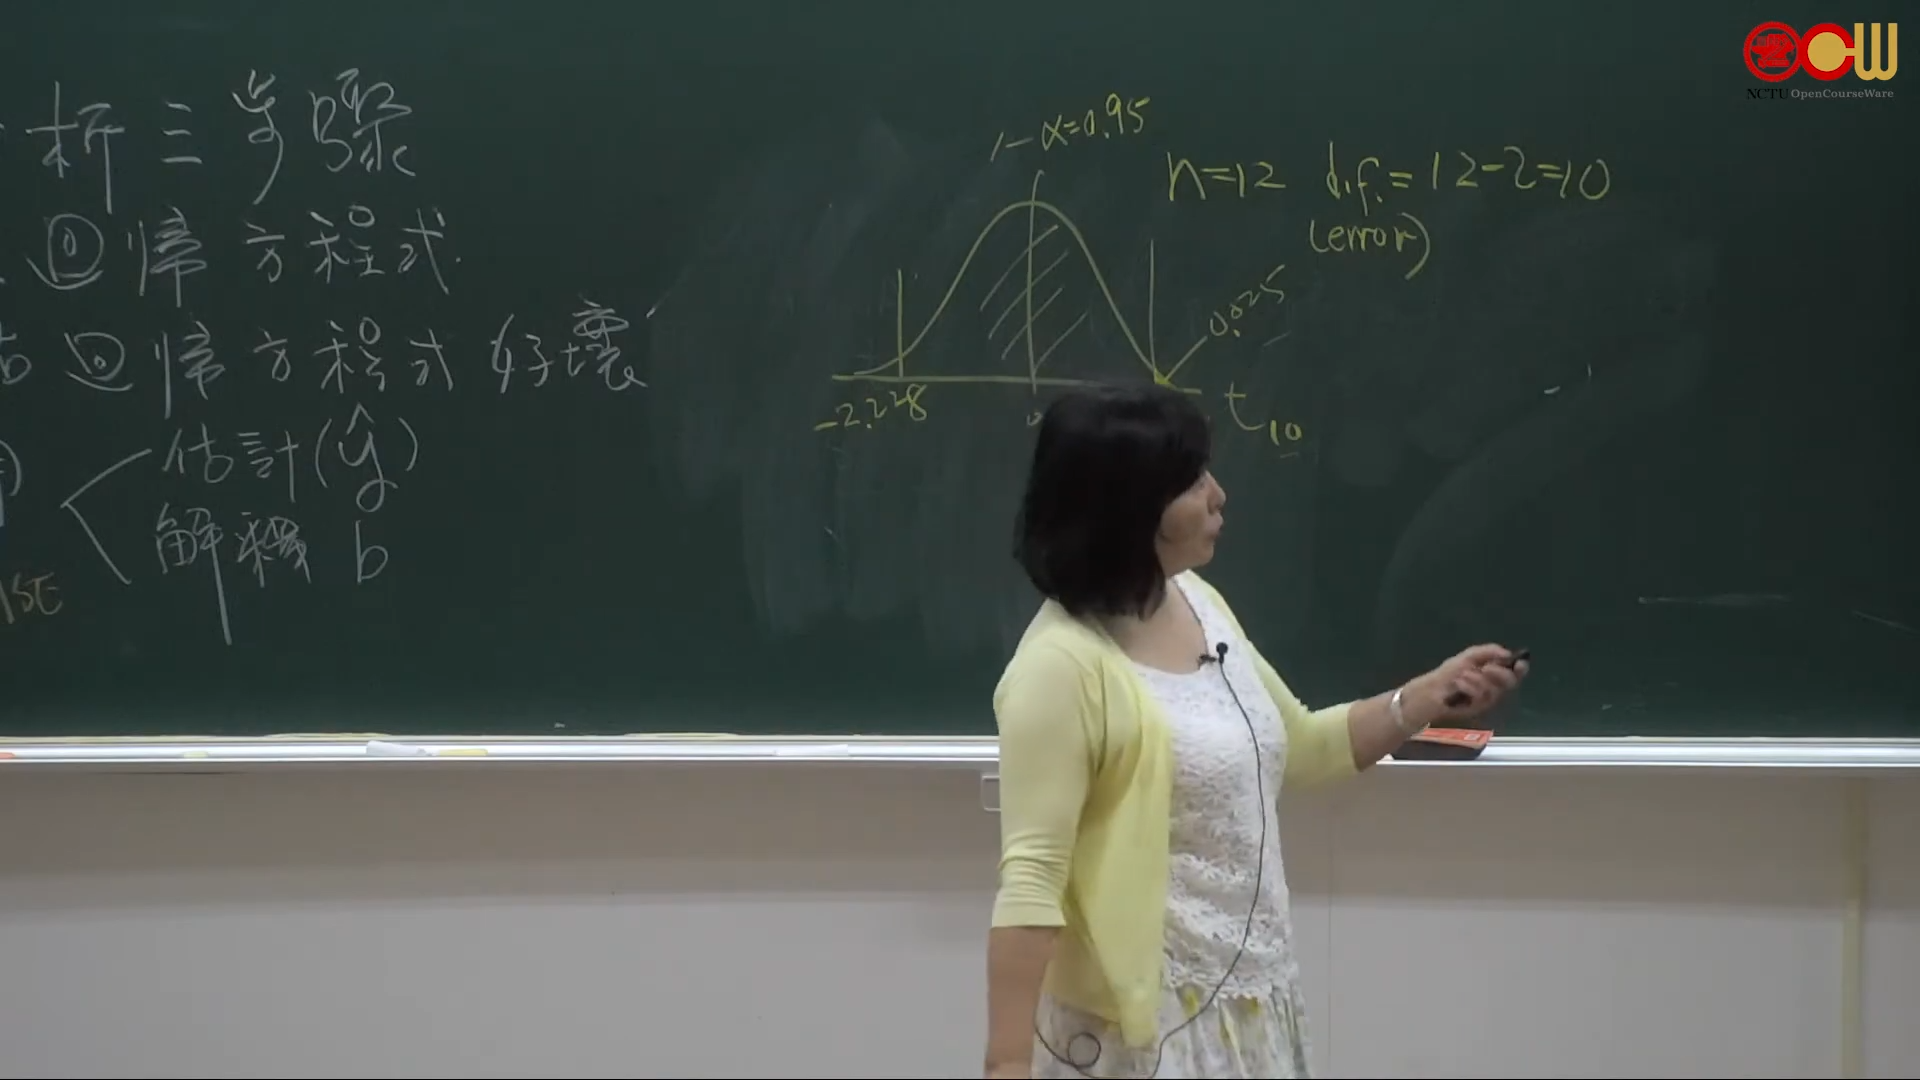 析三步驟
回歸方程式
估回歸方程式好壞
估計(ŷ)
解釋 b
1-α=0.95
n=12 d.f.=12-2=10
(error)
0.025
-2.228
0
t10
NCTU OpenCourseWare